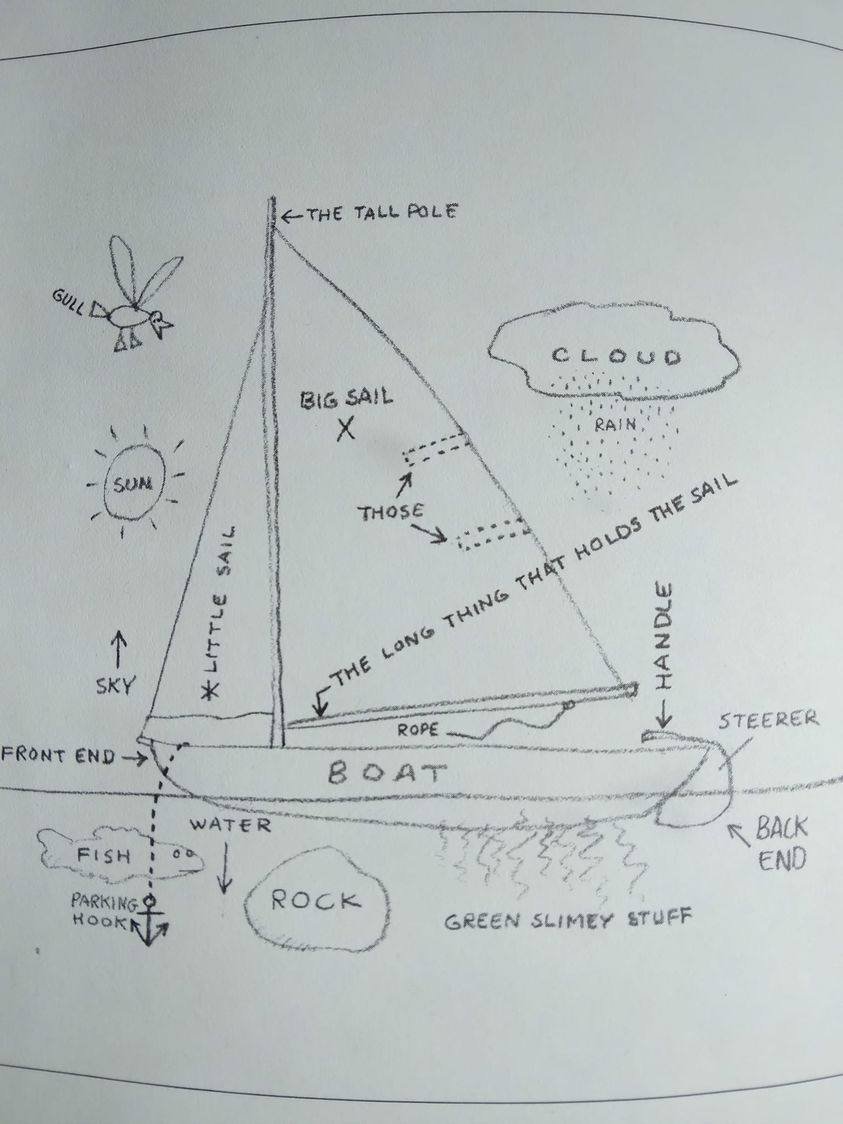 THE TALL POLE
GULL
CLOUD
RAIN
BIG SAIL
X
SUN
THOSE
THE LONG THING THAT HOLDS THE SAIL
* LITTLE SAIL
HANDLE
SKY
STEERER
ROPE
FRONT END
BOAT
WATER
BACK
END
FISH
PARKING
HOOK
ROCK
GREEN SLIMEY STUFF